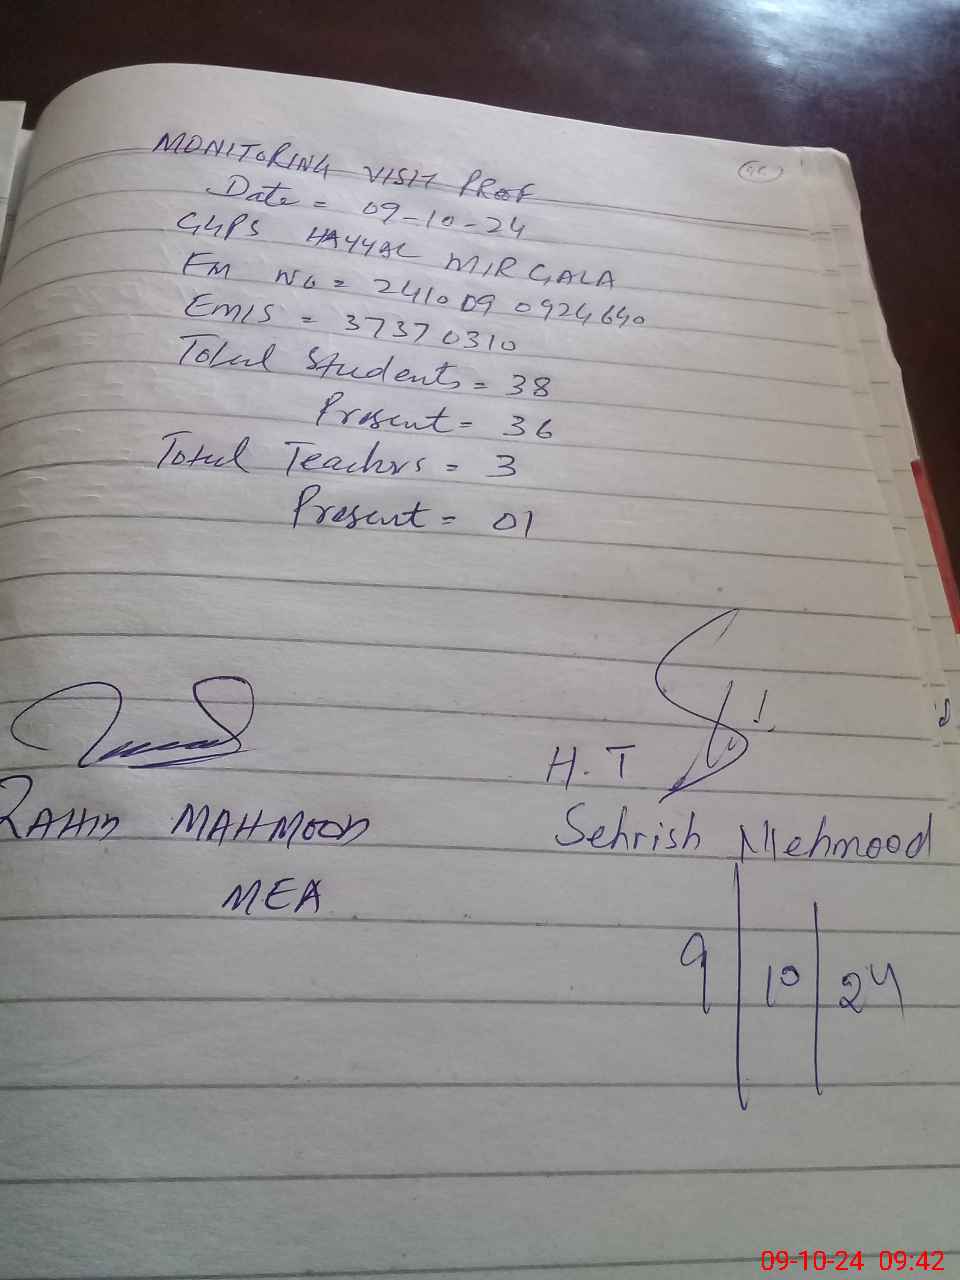 MONITORING VISIT PROF
Date = 09-10-24
GHPS HAYYAL MIRGALA
FM No = 241009 0924640
EMIS = 37370310
Total Students = 38
Present = 36
Total Teachrs = 3
Present = 01
H.T
MAHMOOD
Sehrish Mehmood
MEA
9 | 10 | 24
09-10-24 09:42